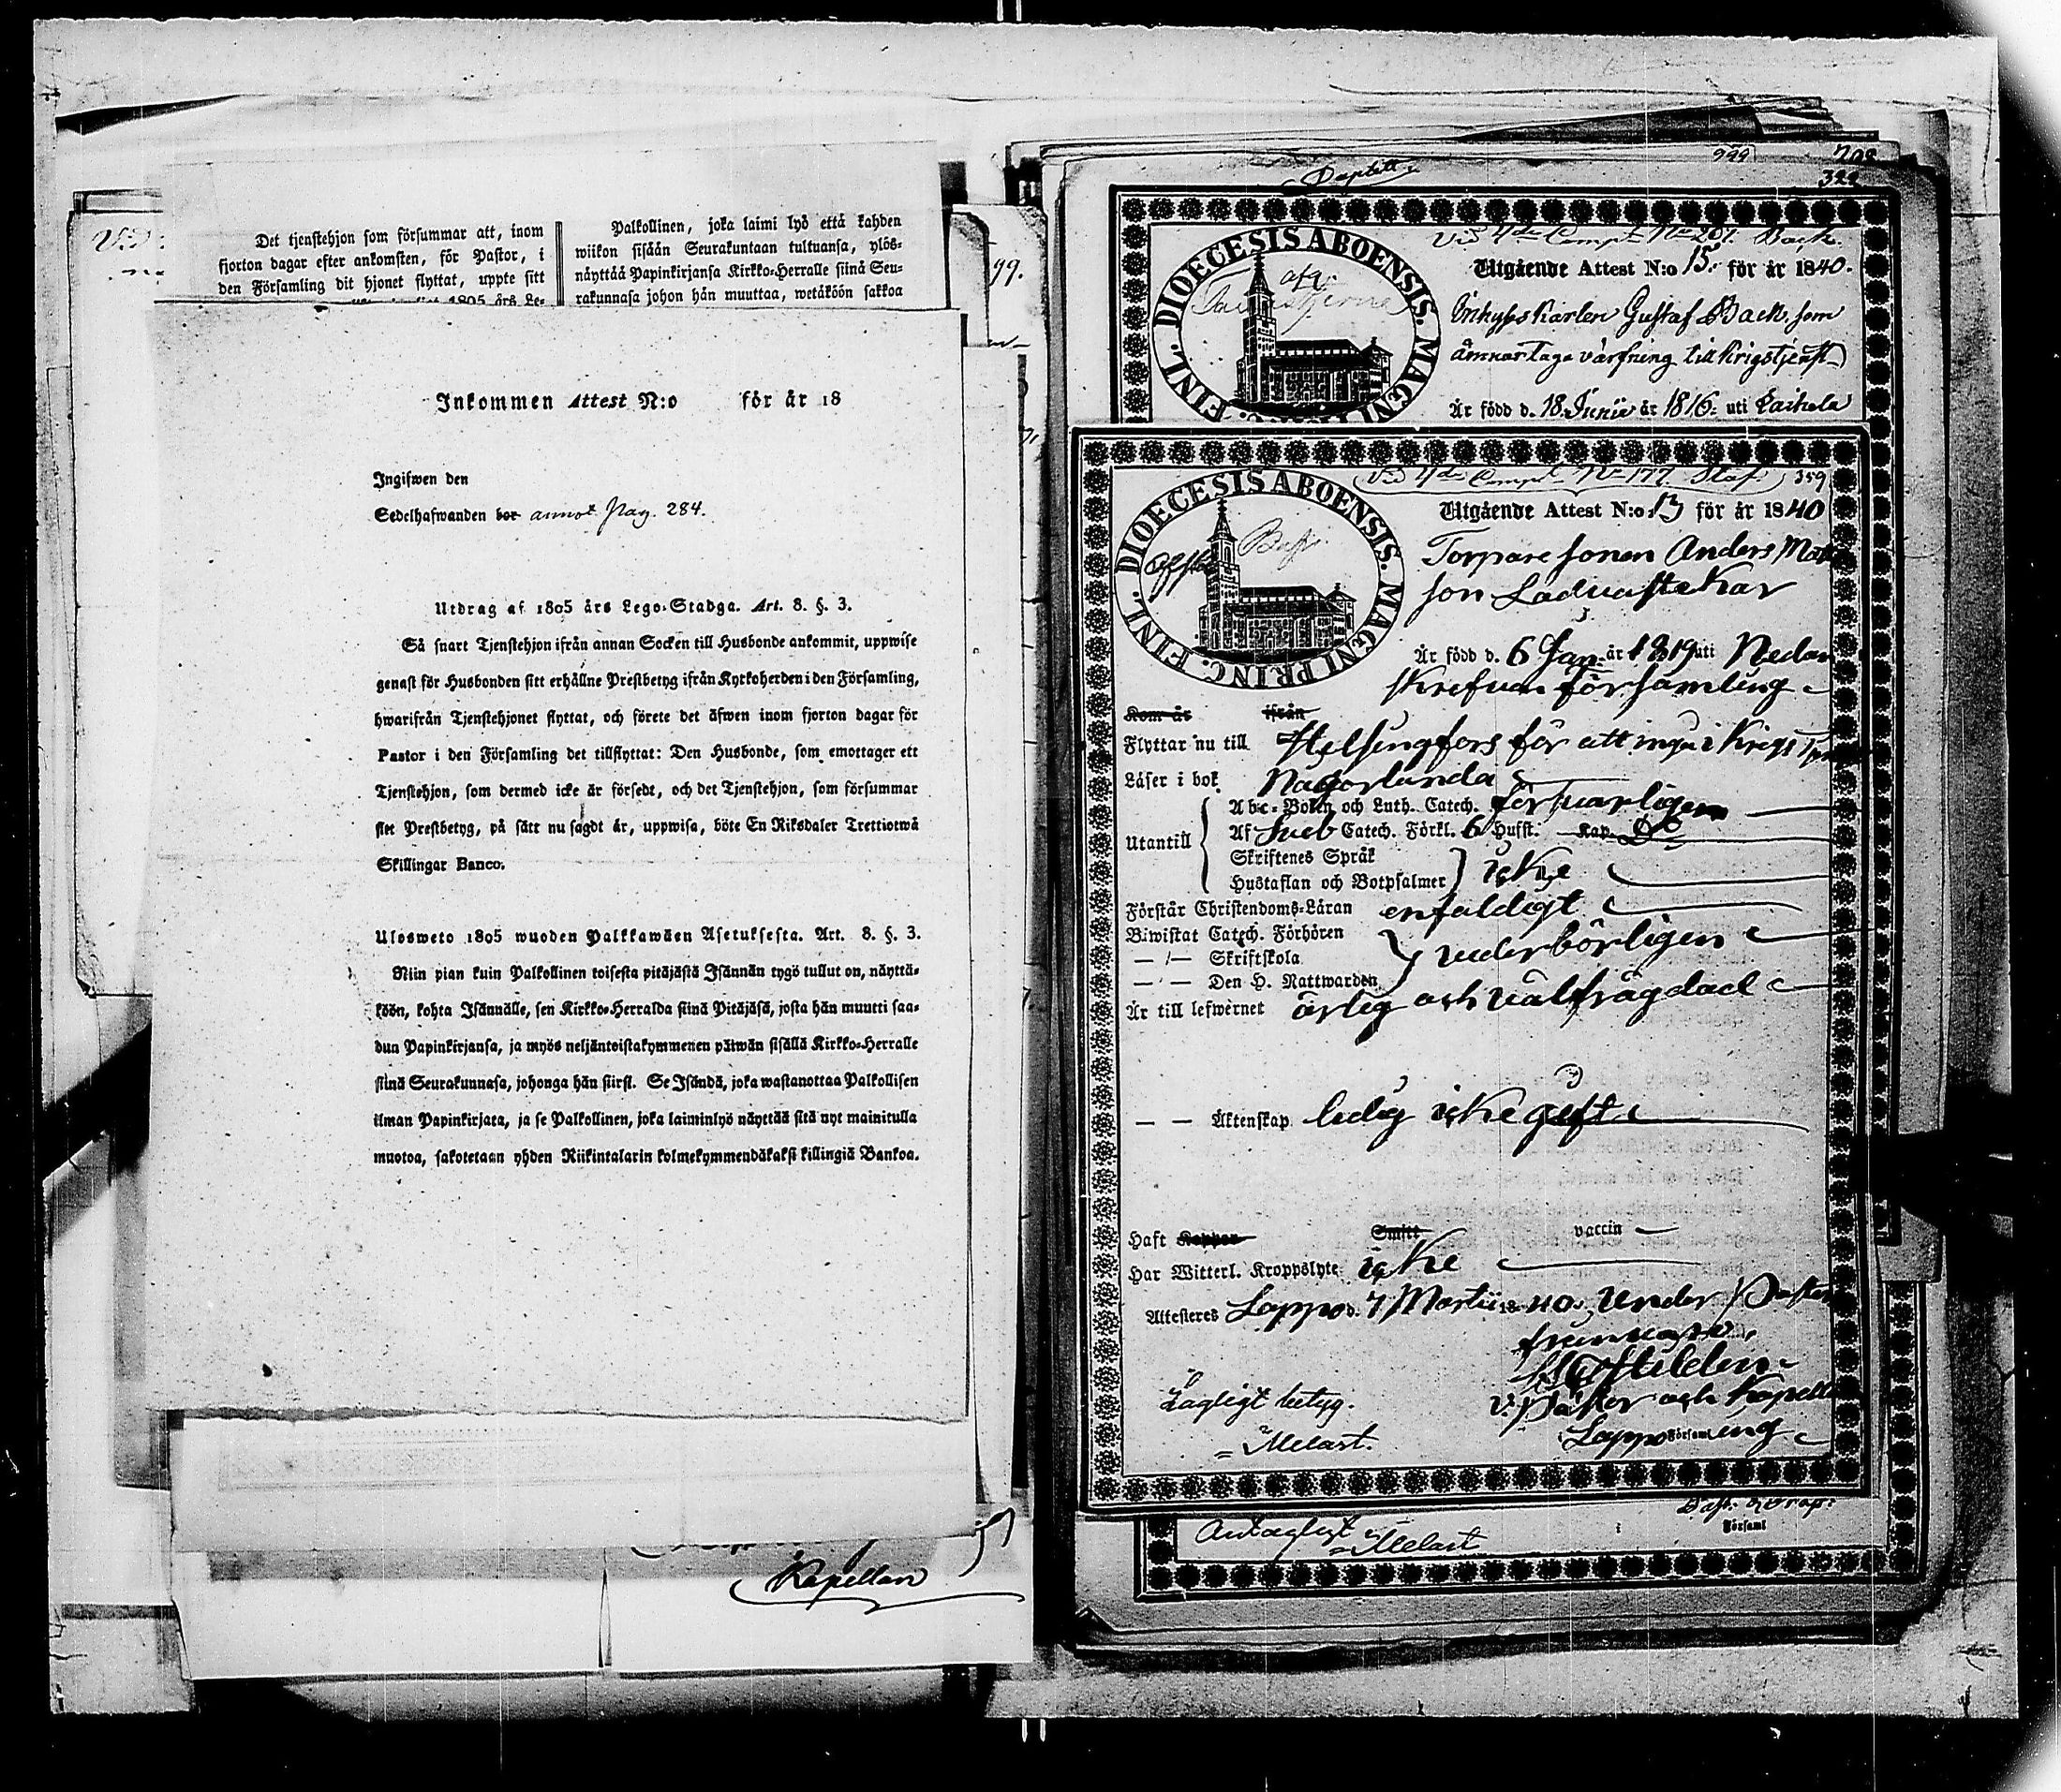 Det tjenstehjon som försummar att, inom
fjorton dagar efter ankomsten, för Pastor, i
den Församling dit hjonet flyttat, uppte sitt
1805 års Le-
Palkollinen, joka laimi lyö että kahden
wiikon sisään Seurakuntaan tultuansa, ylös-
näyttää Papinkirjansa Kirkko-Herralle siinä Seu-
rakunnasa johon hän muuttaa, wetäköön sakkoa
Inkommen Attest N:o för år 18
Ingifwen den
Sedelhafwanden bor annot. Pag. 284.
Utdrag af 1805 års Lego-Stadga. Art. 8. §. 3.
Så snart Tjenstehjon ifrån annan Socken till Husbonde ankommit, uppwise
genast för Husbonden sitt erhållne Prestbetyg ifrån Kyrkoherden i den Församling,
hwarifrån Tjenstehjonet flyttat, och förete det äfwen inom fjorton dagar för
Pastor i den Församling det tillflyttat: Den Husbonde, som emottager ett
Tjenstehjon, som dermed icke är försedt, och det Tjenstehjon, som försummar
sitt Prestbetyg, på sätt nu sagdt är, uppwisa, böte En Riksdaler Trettiotwå
Skillingar Banco.
Ulosweto 1805 wuoden Palkkawäen Asetuksesta. Art. 8. §. 3.
Niin pian kuin Palkollinen toisesta pitäjästä Isännän tygö tullut on, näyttä-
köön, kohta Isännälle, sen Kirkko-Herralda siinä Pitäjäsä, josta hän muutti saa-
dun Papinkirjansa, ja myös neljäntoistakymmenen päiwän sisällä Kirkko-Herralle
siinä Seurakunnasa, johonga hän siirsi. Se Isändä, joka wastanottaa Palkollisen
ilman Papinkirjata, ja se Palkollinen, joka laiminlyö näyttää sitä nyt mainitulla
muotoa, sakotetaan yhden Riikintalarin kolmekymmendäkaksi killingiä Bankoa.
Kapellan
999 708
322
DIOECESIS ABOENSIS. MAGNI PRINC. FINL.
Vid 4de Comp. No 201. Back.
Utgående Attest N:o 15. för år 1840.
Inhyses Karlen Gustaf Back, som
ämnar taga värfning till Krigstjenst
Är född d. 18 Junii år 1816 uti Laihela
DIOECESIS ABOENSIS. MAGNI PRINC. FINL.
Vid 4de Comp. No 177. Staf 359
Utgående Attest N:o 13 för år 1840
Torpare sonen Anders Mats
son Ladvastekar
Är född d. 6 Jan. år 1819 uti Nedan
skrefvan församling
Kom år ifrån
Flyttar nu till Helsingfors för att ingå i Krigs
Läser i bok Någorlunda
Utantill
Abc-Boken och Luth. Catech. försvarligen
Af Sveb Catech. Förkl. 6 Hufst. Kap. Do
Skriftenes Språk
Hustaflan och Botpsalmer icke
Förstår Christendoms-Läran enfaldigt
Biwistat Catech. Förhören
— — Skriftskola vederbörligen
— — Den H. Nattwarden
Är till lefwernet ärlig och välfrägdad
— — Äktenskap ledig icke gift
Haft Koppor Smitt vaccin
Har Witterl. Kroppslyte icke
Attesteres Lappo d. 7 Martii 1840. Under Pastors
frånvaro,
v. Pastor och Kapellan
Lappo Församling
Lagligt betyg.
Melart.
Antagligt
Melart
Församl